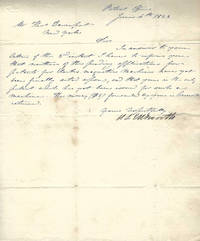 Patent Office
June 6th 1842
Mr Thos Davenport
New York
Sir
In answer to your
letter of the 3d inst I have to inform you
that neither of the pending applications for
patents for Electro magnetic Machines have yet
been finally acted upon, and that yours is the only
patent which has yet been issued for such a
machine. The money ($5) forwarded by you is herewith
returned.
Yours respectfully
H L Ellsworth